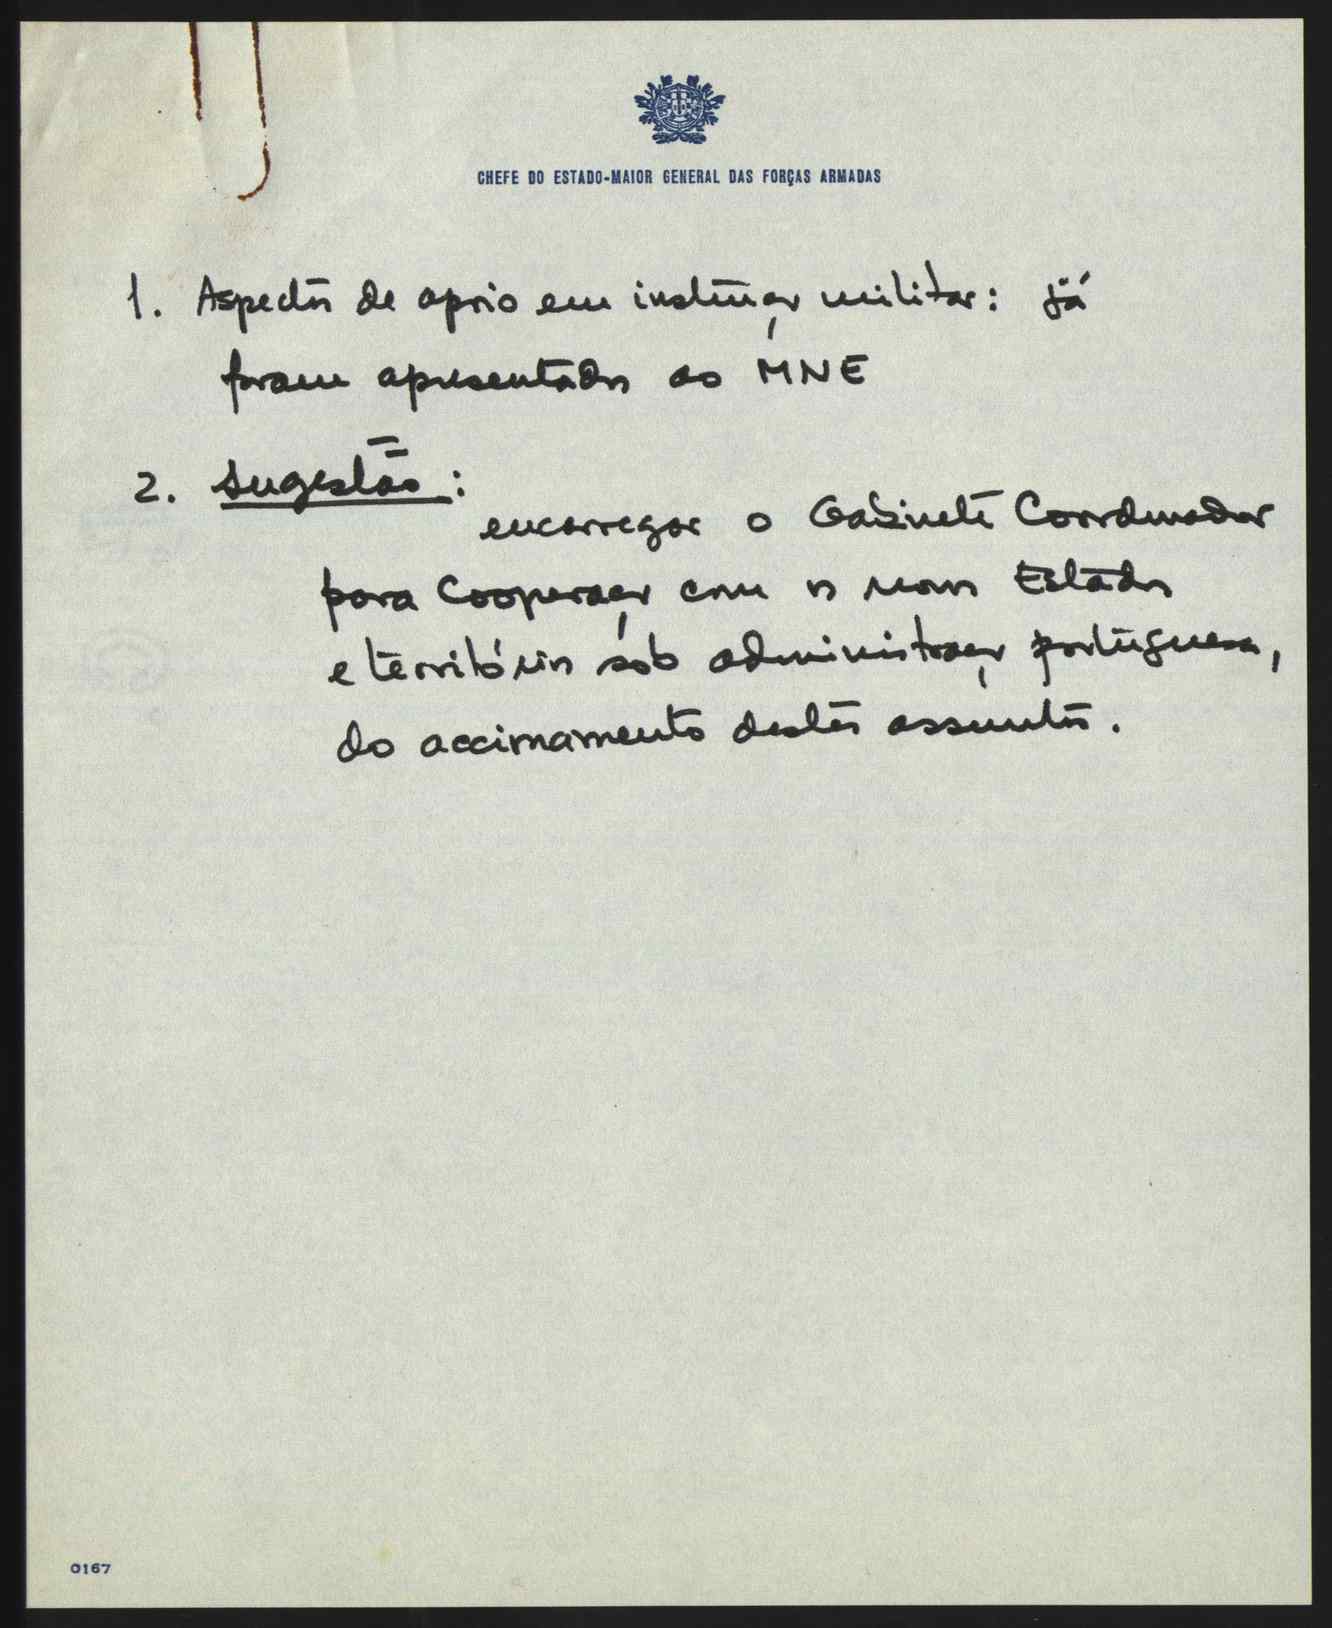 CHEFE DO ESTADO-MAIOR GENERAL DAS FORÇAS ARMADAS
1. Aspectos de apoio em instrução militar: já
foram apresentados ao MNE
2. Sugestão:
encarregar o Gabinete Coordenador
para Cooperação com os novos Estados
e territórios sob administração portuguesa,
do accionamento destes assuntos.
0167